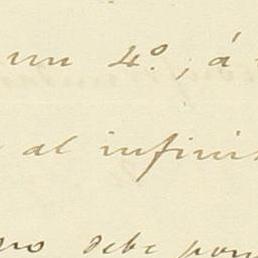 un 4º; á
al infini
debe pon